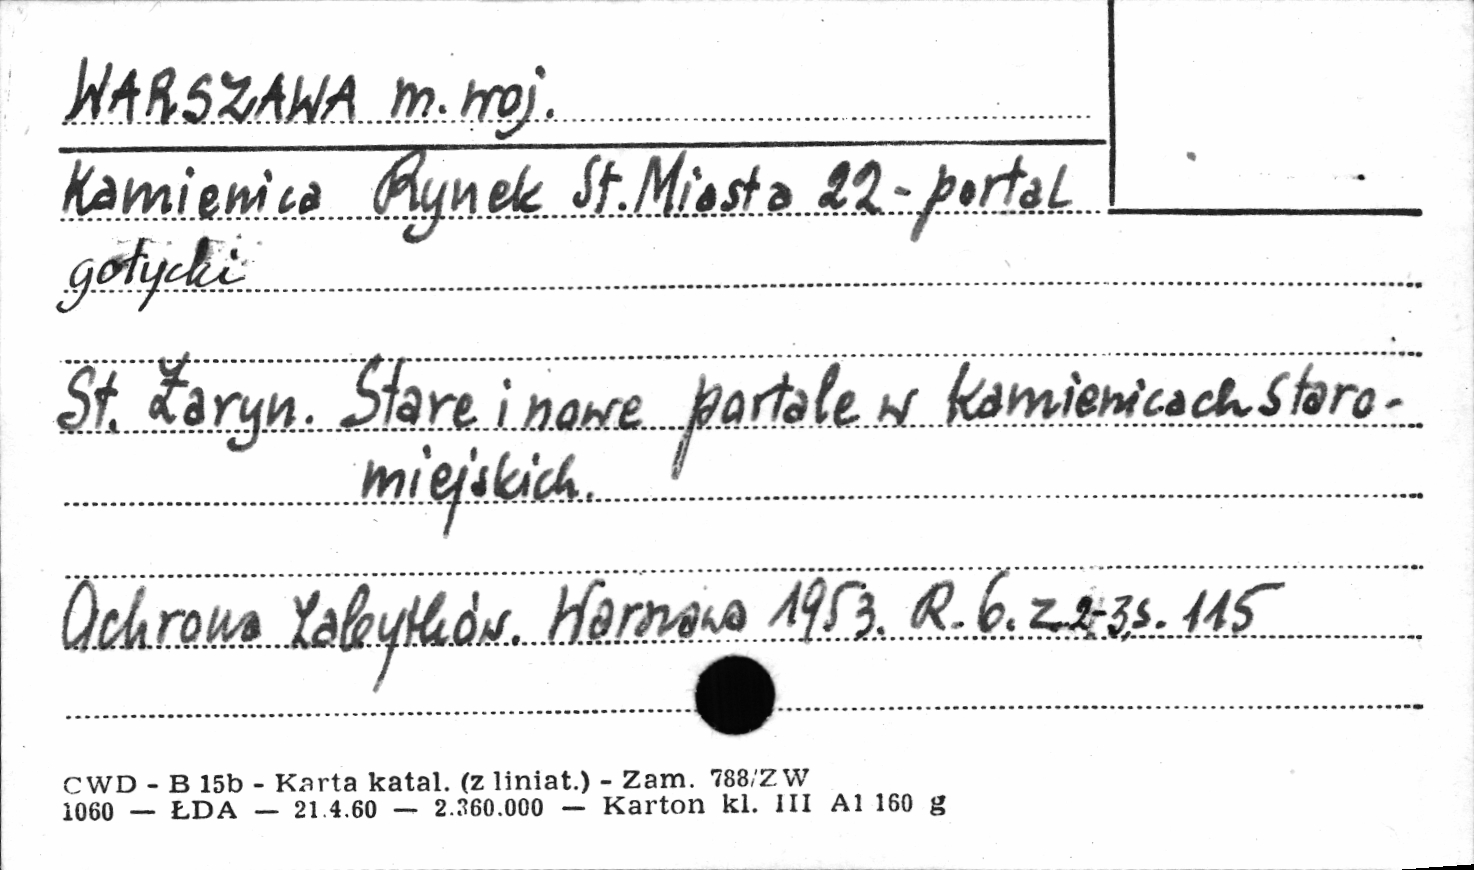 WARSZAWA m. woj.
Kamienica Rynek St. Miasta 22 - portal
gotycki
St. Żaryn. Stare i nowe portale w kamienicach staro-
miejskich.
Ochrona Zabytków. Warszawa 1953. R. 6. z. 2-3, s. 115
CWD - B 15b - Karta katal. (z liniat.) - Zam. 788/ZW
1060 — ŁDA — 21.4.60 — 2.360.000 — Karton kl. III A1 160 g